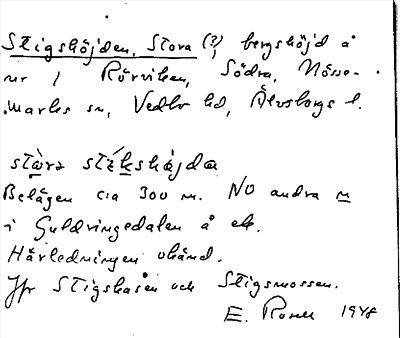 Stigshöjden, Stora (?), bergshöjd å
nr 1 Rörviken, Södra, Nösse-
marks sn, Vedbo hd, Älvsborgs l.
stàrə stékshöjda
Belägen c:a 300 m. NO andra n
i Guldringedalen å ek.
Härledningen okänd.
Jfr Stigshasån och Stigsmossen.
E. Rosell 1948